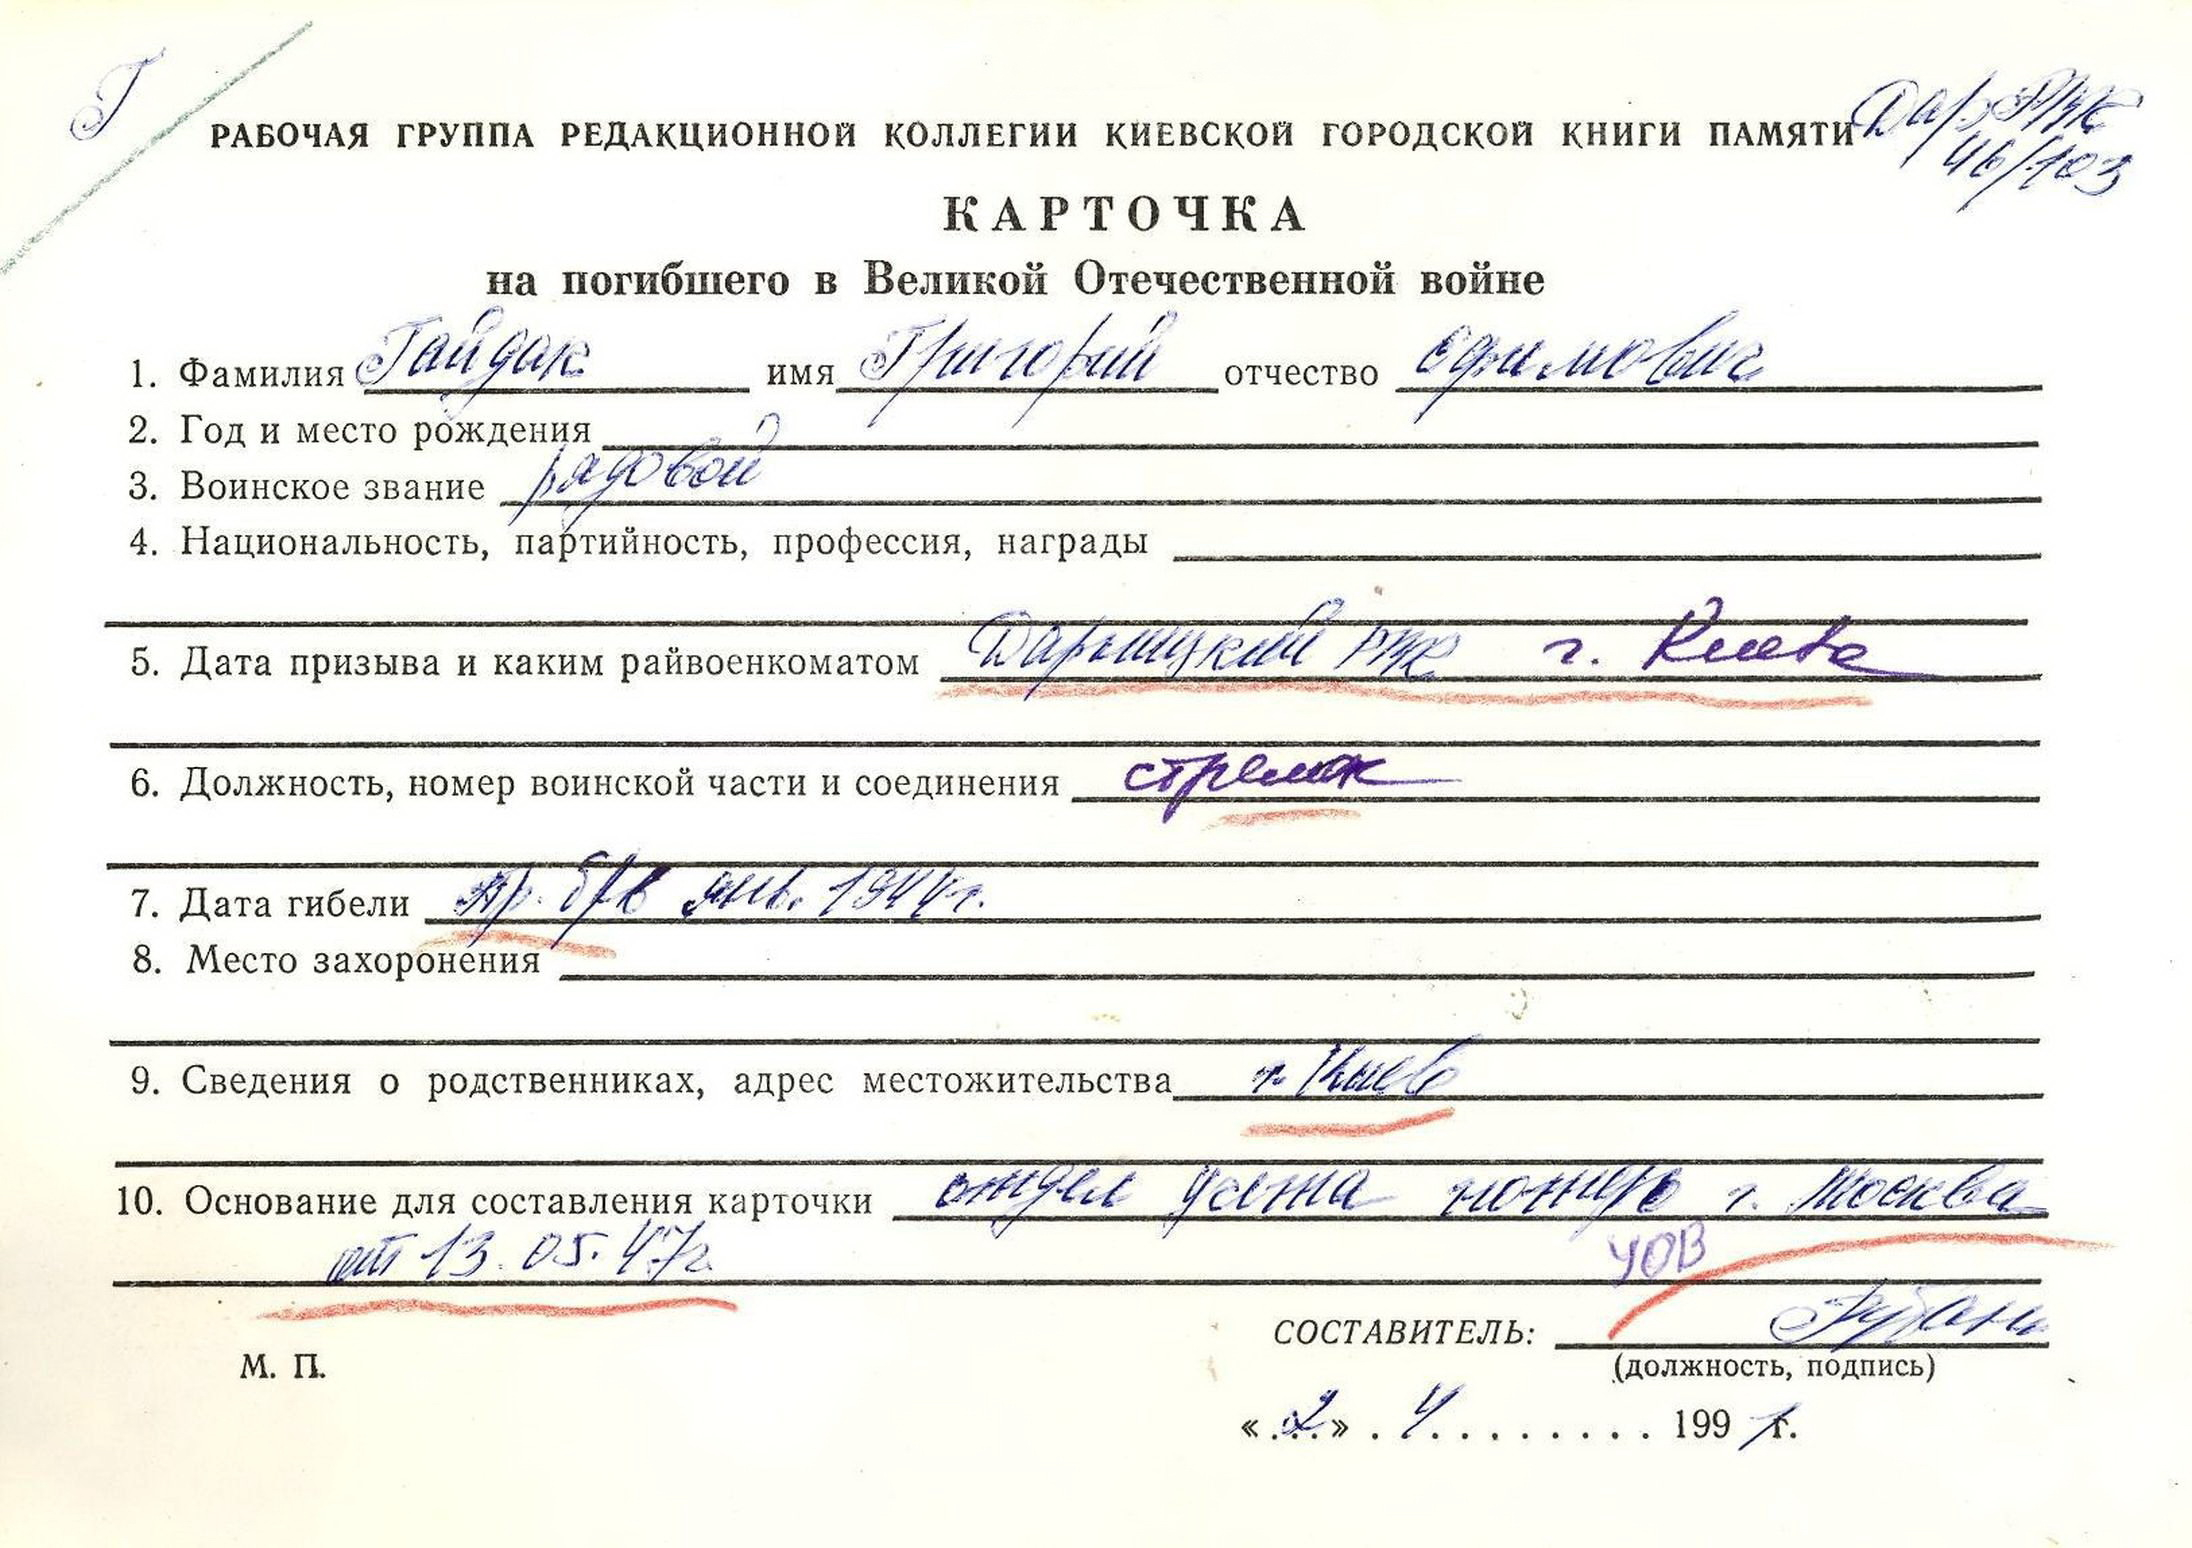 Г
Дар. РВК
46/103
РАБОЧАЯ ГРУППА РЕДАКЦИОННОЙ КОЛЛЕГИИ КИЕВСКОЙ ГОРОДСКОЙ КНИГИ ПАМЯТИ
КАРТОЧКА
на погибшего в Великой Отечественной войне
1. Фамилия Гайдак имя Григорий отчество Ефимович
2. Год и место рождения
3. Воинское звание рядовой
4. Национальность, партийность, профессия, награды
5. Дата призыва и каким райвоенкоматом Дарницкий РВК г. Киева
6. Должность, номер воинской части и соединения стрелок
7. Дата гибели пр. б/в янв. 1944г.
8. Место захоронения
9. Сведения о родственниках, адрес местожительства г. Киев
10. Основание для составления карточки отдел учета потерь г. Москва
от 13.05.47г. УОВ
СОСТАВИТЕЛЬ:
(должность, подпись)
М. П.
«2» 4 1991г.